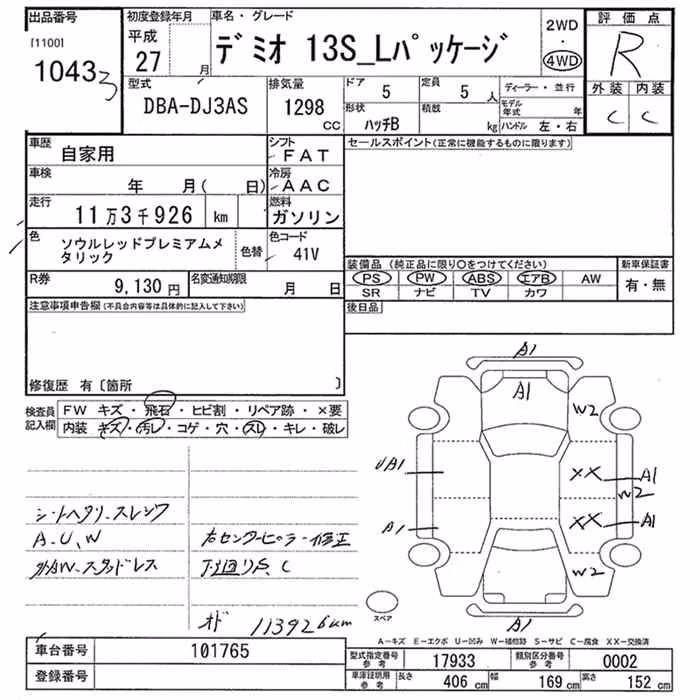 出品番号
[1100]
1043
3
初度登録年月
平成
27 月
車名・グレード
デミオ 13S_Lパッケージ
2WD
・
4WD
評価点
R
外装 内装
C C
型式
DBA-DJ3AS
排気量
1298
CC
ドア
5
定員
5 人
形状
ハッチB
積載
kg
ディーラー・並行
モデル年式 年
ハンドル 左・右
車歴
自家用
シフト
FAT
車検
年 月( 日)
冷房
AAC
走行
11万3千926 km
燃料
ガソリン
色
ソウルレッドプレミアムメタリック
色替
色コード
41V
R券
9,130円
名変通知期限
月 日
セールスポイント(正常に機能するものに限ります)
装備品 (純正品に限り○をつけてください)
PS PW ABS エアB AW
SR ナビ TV カワ
新車保証書
有・無
後日品
注意事項申告欄(不具合内容等は具体的に記入して下さい)
修復歴 有〔箇所 〕
検査員記入欄
FW キズ・飛石・ヒビ割・リペア跡・×要
内装 キズ・汚レ・コゲ・穴・スレ・キレ・破レ
シートヘタリ、スレ、シワ
A、U、W
外AW、スタッドレス
右センターピラー修正
下廻りS、C
オド 113926km
A1
A1
W2
UA1
XX
A1
W2
A1
XX
A1
W2
A1
スペア
A-キズ E-エクボ U-凹み W-補修跡 S-サビ C-腐食 XX-交換済
車台番号
101765
登録番号
型式指定番号
参考
17933
類別区分番号
参考
0002
車庫証明用
参考
長さ
406 cm
幅
169 cm
高さ
152 cm